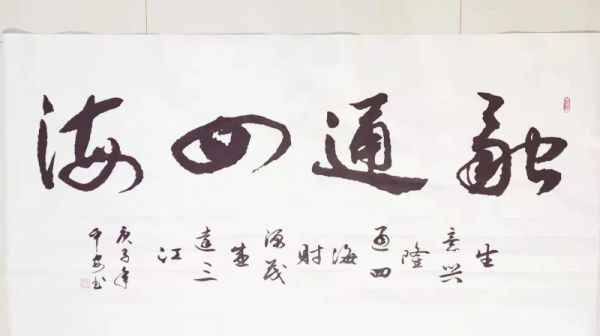 融通四海
生
意兴
隆
通四
海
财
源茂
盛
達三
江
庚子年